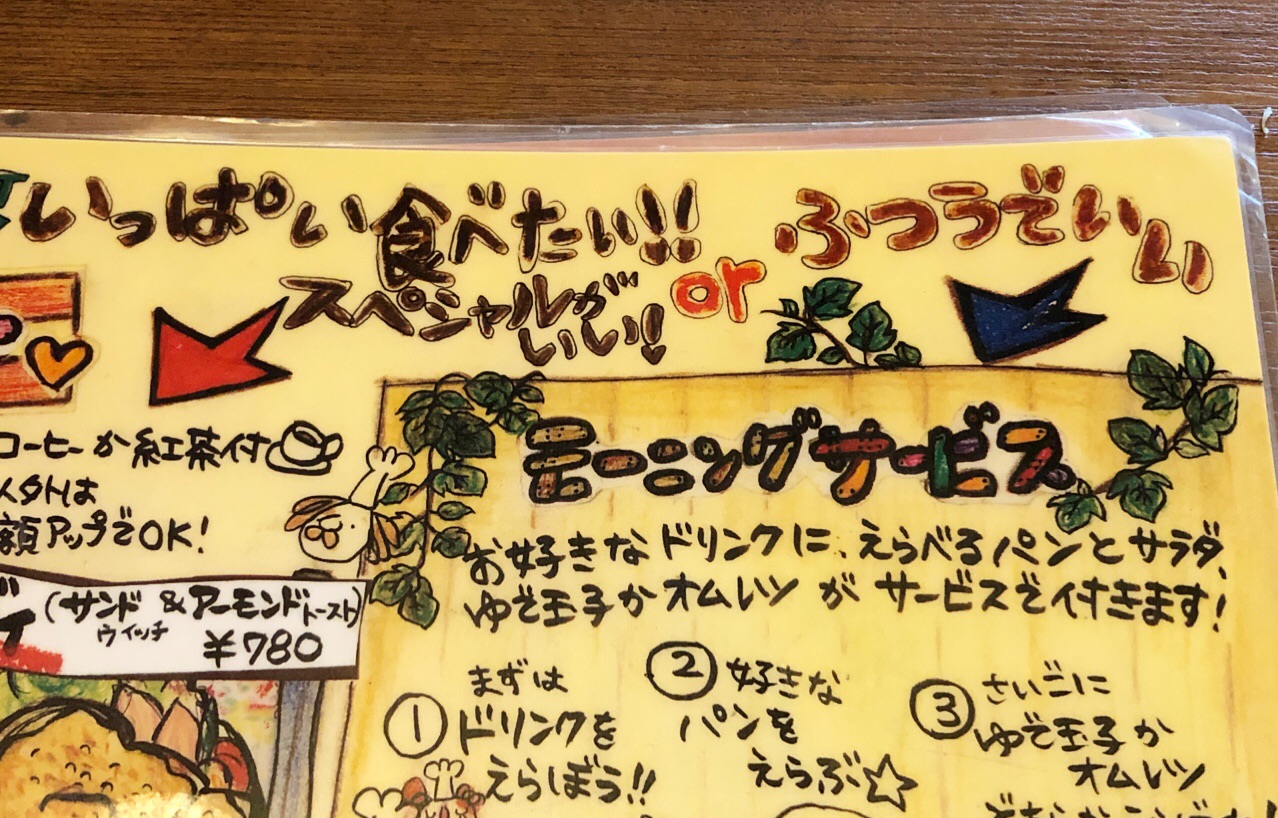 いっぱい食べたい!!
スペシャルが
いい!!
or
ふつうでいい
コーヒーか紅茶付
額アップでOK!
(サンドウィッチ &アーモンドトースト)
¥780
モーニングサービス
お好きなドリンクに、えらべるパンとサラダ、
ゆで玉子かオムレツ が サービスで付きます!
① まずは
ドリンクを
えらぼう!!
② 好きな
パンを
えらぶ☆
③ さいごに
ゆで玉子か
オムレツ